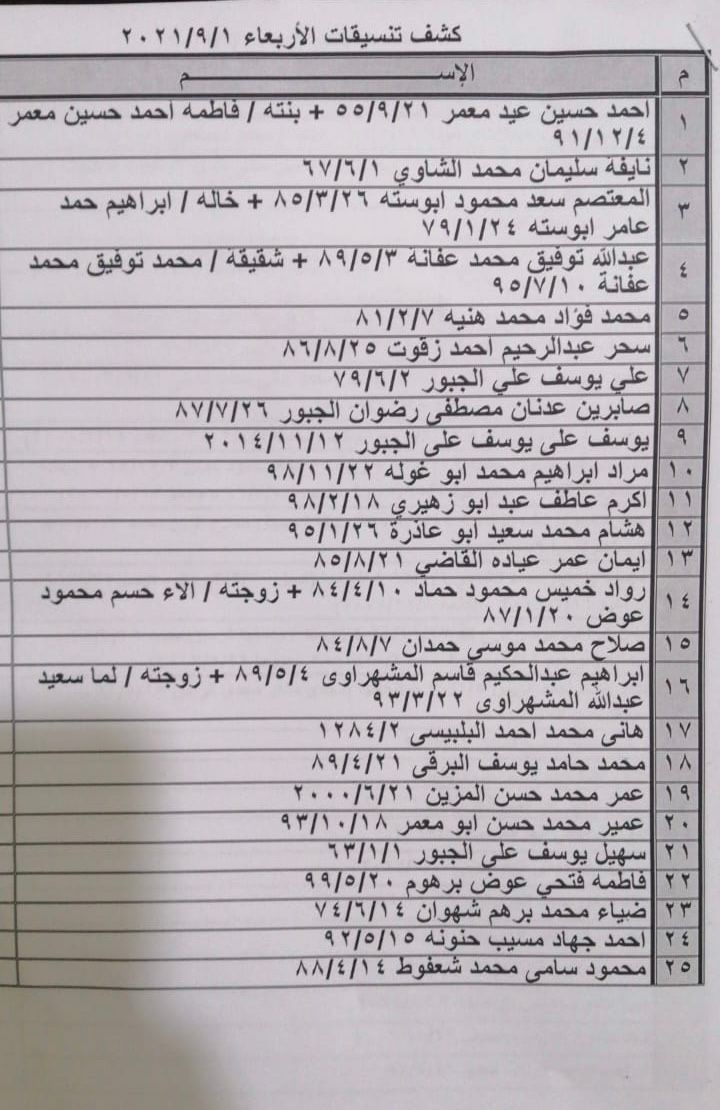 كشف تنسيقات الأربعاء ٢٠٢١/٩/١
م الإســـــــــم
١ احمد حسين عيد معمر ٥٥/٩/٢١ + بنته / فاطمه احمد حسين معمر
٩١/١٢/٤
٢ نايفة سليمان محمد الشاوي ٦٧/٦/١
٣ المعتصم سعد محمود ابوسته ٨٥/٣/٢٦ + خاله / ابراهيم حمد
عامر ابوسته ٧٩/١/٢٤
٤ عبدالله توفيق محمد عفانة ٨٩/٥/٣ + شقيقة / محمد توفيق محمد
عفانة ٩٥/٧/١٠
٥ محمد فؤاد محمد هنيه ٨١/٢/٧
٦ سحر عبدالرحيم احمد زقوت ٨٦/٨/٢٥
٧ علي يوسف علي الجبور ٧٩/٦/٢
٨ صابرين عدنان مصطفى رضوان الجبور ٨٧/٧/٢٦
٩ يوسف على يوسف على الجبور ٢٠١٤/١١/١٢
١٠ مراد ابراهيم محمد ابو غوله ٩٨/١١/٢٢
١١ اكرم عاطف عبد ابو زهيري ٩٨/٢/١٨
١٢ هشام محمد سعيد ابو عاذرة ٩٥/١/٢٦
١٣ ايمان عمر عياده القاضي ٨٥/٨/٢١
١٤ رواد خميس محمود حماد ٨٤/٤/١٠ + زوجته / الاء حسم محمود
عوض ٨٧/١/٢٠
١٥ صلاح محمد موسي حمدان ٨٤/٨/٧
١٦ ابراهيم عبدالحكيم قاسم المشهراوى ٨٩/٥/٤ + زوجته / لما سعيد
عبدالله المشهراوى ٩٣/٣/٢٢
١٧ هانى محمد احمد البلبيسى ١٢٨٤/٢
١٨ محمد حامد يوسف البرقى ٨٩/٤/٢١
١٩ عمر محمد حسن المزين ٢٠٠٠/٦/٢١
٢٠ عمير محمد حسن ابو معمر ٩٣/١٠/١٨
٢١ سهيل يوسف على الجبور ٦٣/١/١
٢٢ فاطمه فتحي عوض برهوم ٩٩/٥/٢٠
٢٣ ضياء محمد برهم شهوان ٧٤/٦/١٤
٢٤ احمد جهاد مسيب حنونه ٩٢/٥/١٥
٢٥ محمود سامى محمد شعفوط ٨٨/٤/١٤